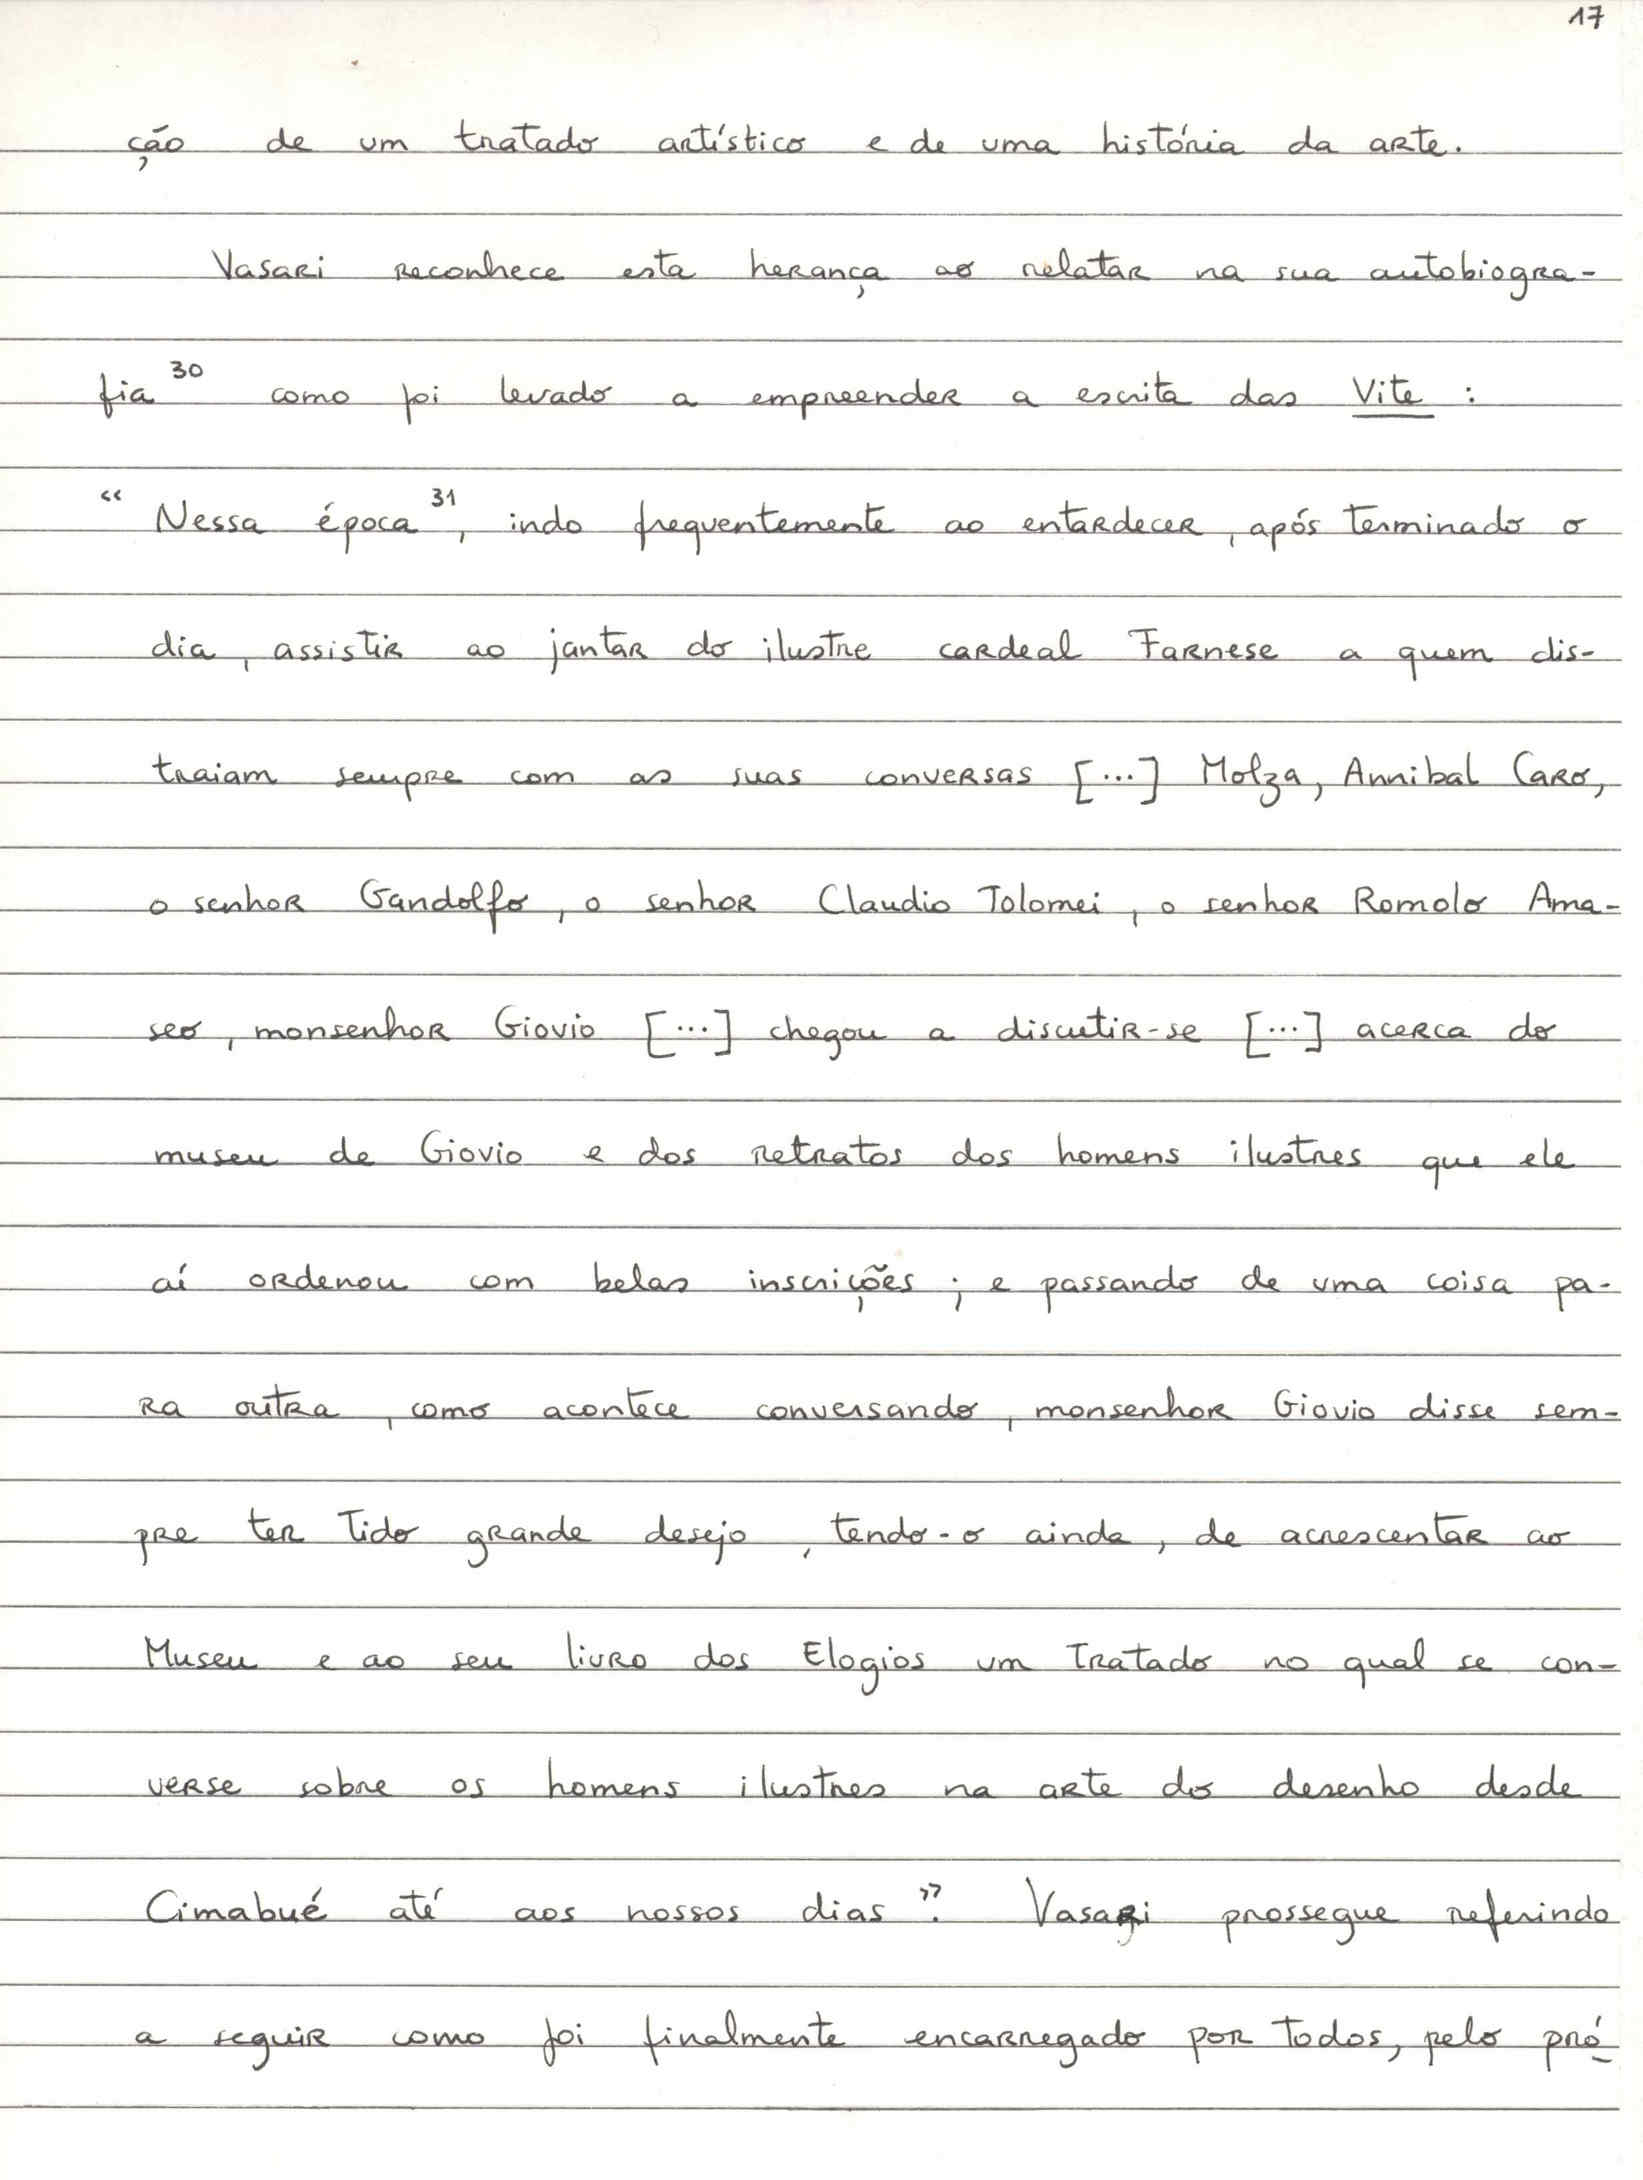 17
ção de um tratado artístico e de uma história da arte.
Vasari reconhece esta herança ao relatar na sua autobiogra-
fia 30 como foi levado a empreender a escrita das Vite :
“ Nessa época 31, indo frequentemente ao entardecer, após terminado o
dia, assistir ao jantar do ilustre cardeal Farnese a quem dis-
traiam sempre com as suas conversas [...] Molza, Annibal Caro,
o senhor Gandolfo, o senhor Claudio Tolomei, o senhor Romolo Ama-
seo, monsenhor Giovio [...] chegou a discutir-se [...] acerca do
museu de Giovio e dos retratos dos homens ilustres que ele
aí ordenou com belas inscrições ; e passando de uma coisa pa-
ra outra, como acontece conversando, monsenhor Giovio disse sem-
pre ter tido grande desejo, tendo-o ainda, de acrescentar ao
Museu e ao seu livro dos Elogios um tratado no qual se con-
verse sobre os homens ilustres na arte do desenho desde
Cimabué até aos nossos dias ”. Vasari prossegue referindo
a seguir como foi finalmente encarregado por todos, pelo pró-